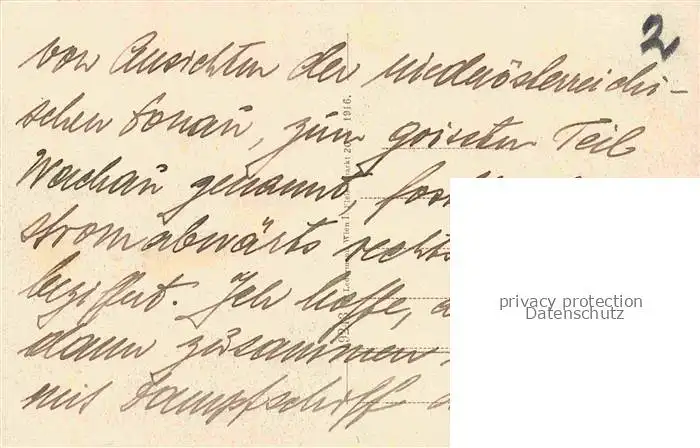 2
von Ansichten der niederösterreichi-
schen Donau, zum Teil
Wachau genannt,
stromabwärts rechts
beziffert. Ich hoffe,
dann zusammen
mit Dampfschiff
1916.
privacy protection
Datenschutz